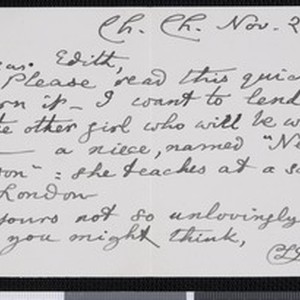 Ch. Ch. Nov. 2
Edith,
Please read this quic
rn it - I want to lend
e other girl who will be w
— a niece, named "Ne
son" : she teaches at a s
London
yours not so unlovingly
you might think,
CL